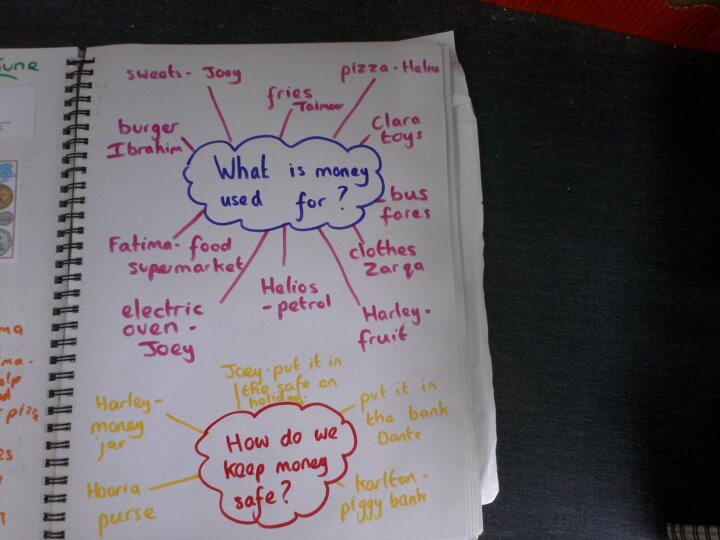 June
sweets - Joey
fries
Taimoor
pizza - Helios
burger
Ibrahim
Clara
toys
What is money
used for?
bus
fares
Fatima - food
supermarket
clothes
Zarqa
Helios
- petrol
electric
oven -
Joey
Harley -
fruit
Joey - put it in
the safe on
holiday
Harley -
money
jar
put it in
the bank
Dante
How do we
keep money
safe?
Hooria
purse
Karlton -
piggy bank
pizza